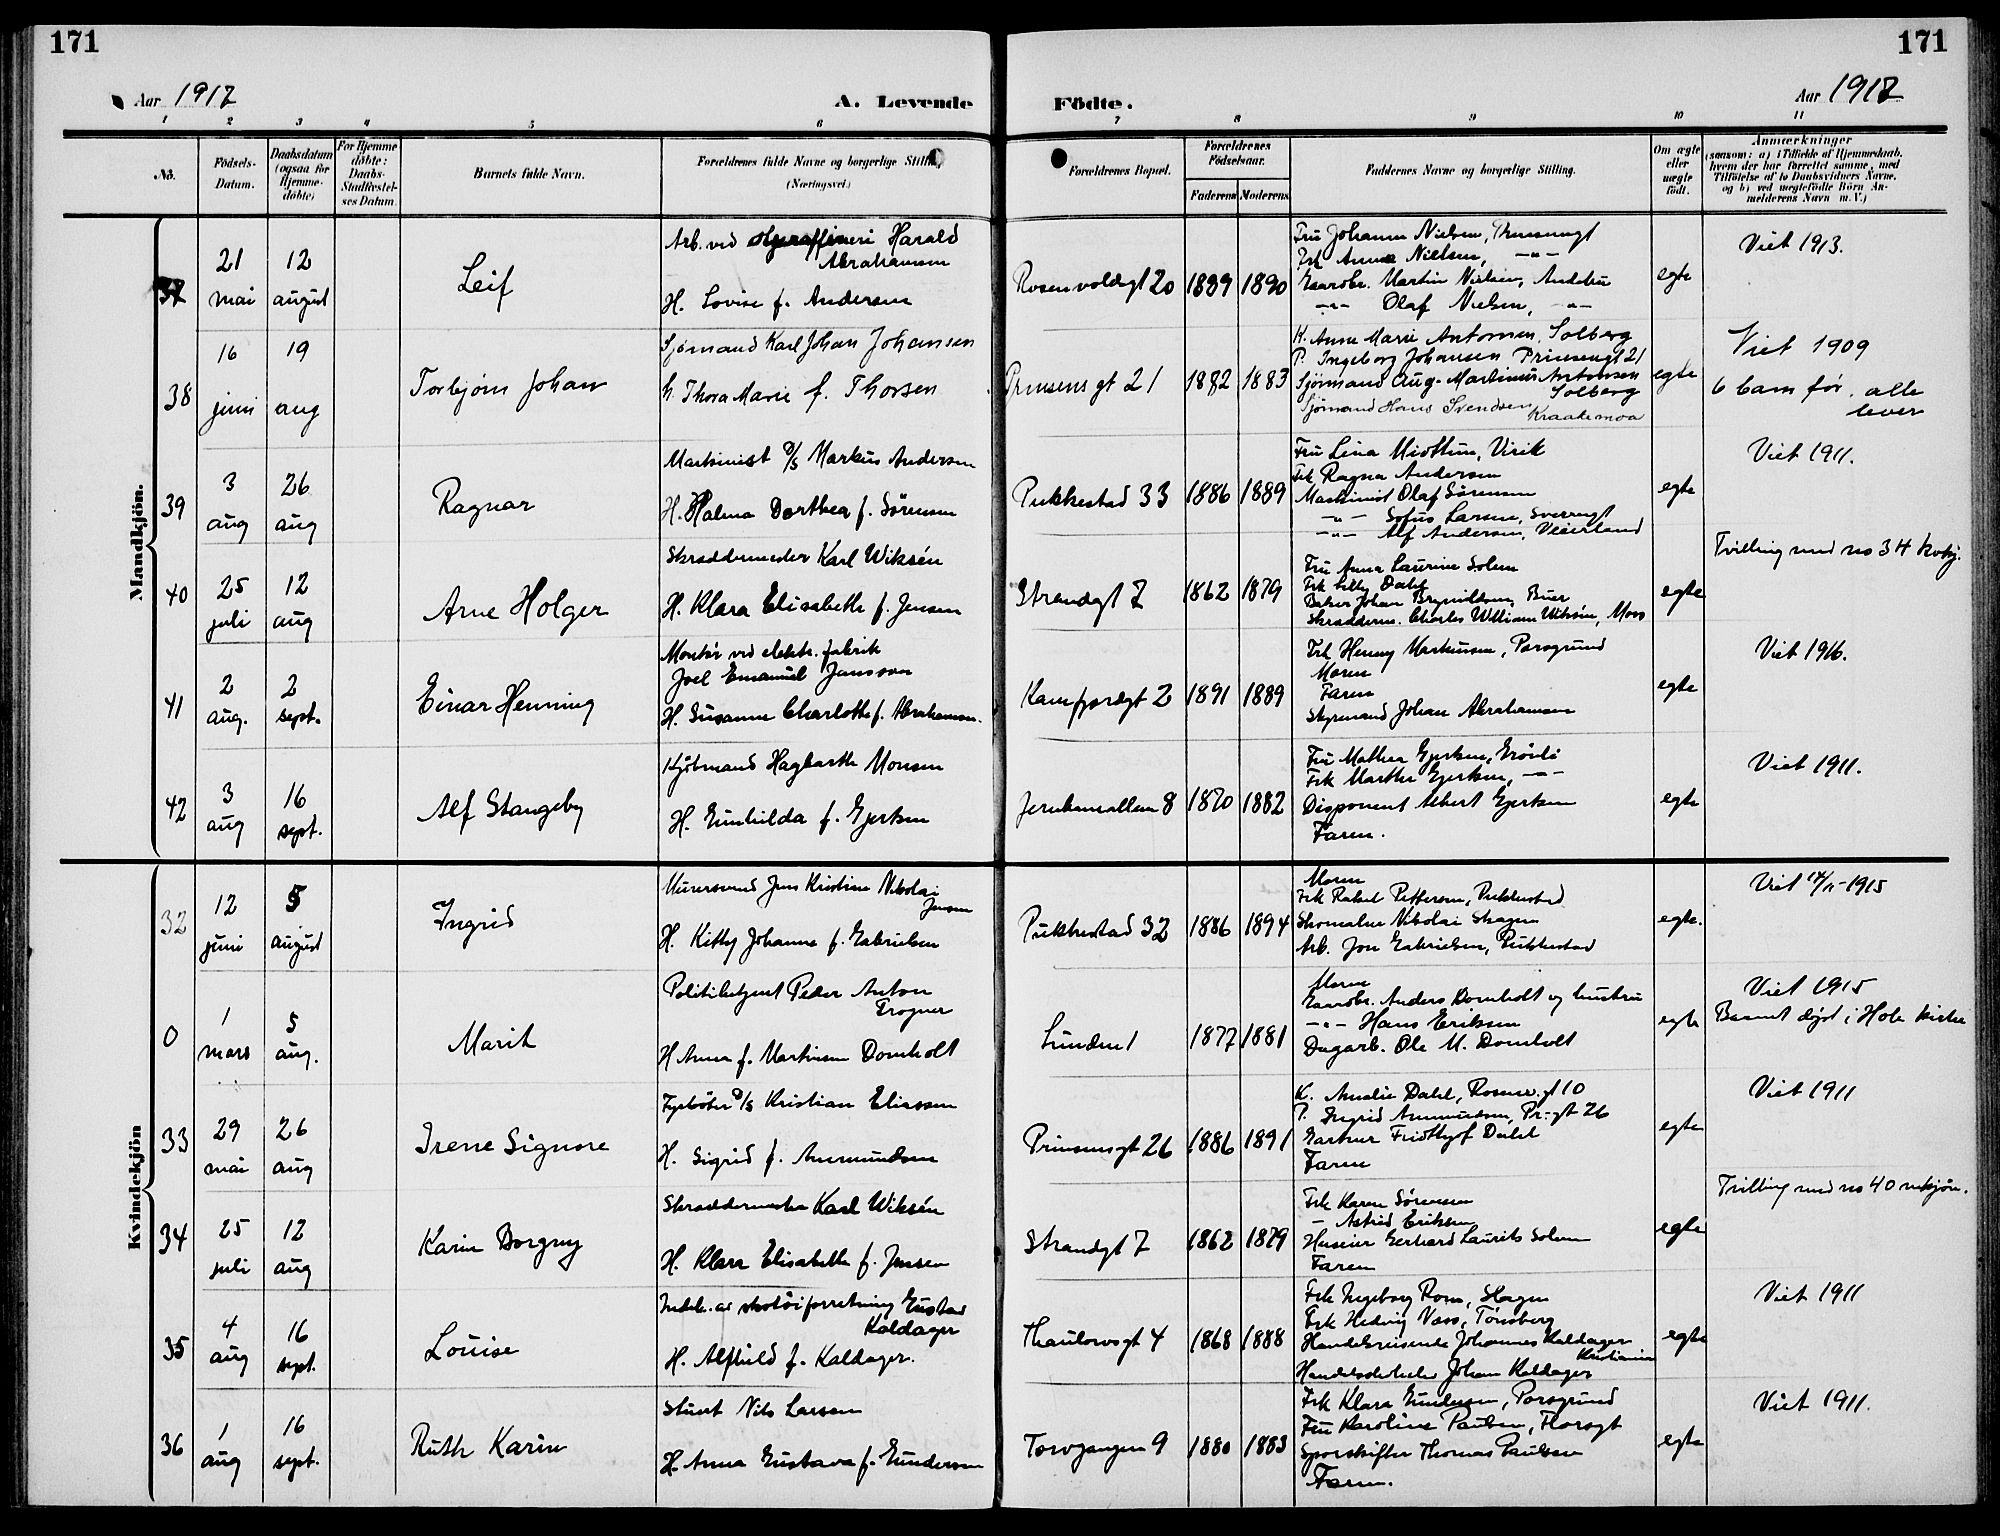 171
171
Aar 1917
A. Levende
Födte.
Aar 1917
1 2 3 4 5 6 7 8 9 10 11
No.
Födsels-Datum.
Daabsdatum (ogsaa for Hjemme-döbte)
For Hjemme döbte: Daabs-Stadfæstel-ses Datum.
Barnets fulde Navn.
Forældrenes fulde Navne og borgerlige Stilling
(Næringsvei.)
Forældrenes Bopæl.
Forældrenes Födselsaar.
Faderens Moderens
Faddernes Navne og borgerlige Stilling.
Om ægte eller uægte födt.
Anmærkninger
(saasom: a) i Tilfælde af Hjemmedaab, hvem der har forrettet samme, med Tilföielse af to Daabsvidners Navne, og b) ved uægtefödte Börn An-melderens Navn m. V.)
Mandkjön.
37
21 mai
12 august
Leif
Arb. ved Harald Abrahamsen
H. Lovise f. Andersen
Rosenvoldgt 20
1889 1890
Fru Johanne Nielsen,
Frk Anna Nielsen, -"-
Gaardbr. Martin Nielsen, Andebu
-"- Olaf Nielsen, -"-
egte
Viet 1913.
38
16 juni
19 aug
Torbjørn Johan
Sjømand Karl Johan Johansen
h. Thora Marie f. Thorsen
Prinsensgt 21
1882 1883
K. Anne Marie Antonsen, Solberg
P. Ingeborg Johansen Prinsengt 21
Sjömand Aug. Martinius Antonsen Solberg
Sjømand Hans Svendsen Kraakemoa
egte
Viet 1909
6 barn før, alle lever
39
3 aug
26 aug
Ragnar
Maskinist D/S Markus Andersen
H. Halma Dorthea f. Sørensen
Pukkestad 33
1886 1889
Fru Lina Midttun, Virik
Frk Ragna Andersen
Maskinist Olaf Sørensen
-"- Sofus Larsen,
-"- Alf Andersen, Veierland
egte
Viet 1911.
40
25 juli
12 aug
Arne Holger
Skræddermester Karl Wiksén
H. Klara Elisabeth f. Jensen
Strandgt 7
1862 1879
Fru Anna Laurine Solem
Frk Lilly Dahl
Baker Johan Brynildsen, Buer
Skrædderm. Charles William Wiksén, Moss
egte
Tvilling med no 34 kvkj.
41
2 aug.
2 sept.
Einar Henning
Montør ved elektr. fabrik
Joel Emanuel Jansson
H. Susanne Charlotte f. Abrahamsen.
Kamfjordgt 2
1891 1889
Frk Henny Markussen, Porsgrund
Moren
Faren
Styrmand Johan Abrahamsen
egte
Viet 1916.
42
3 aug
16 sept.
Alf Stangeby
Kjøbmand Hagbarth Monsen
H. Gunhilda f. Gjertsen
Jernbanealleen 8
1870 1882
Fru Mathea Gjertsen,
Frk Marthe Gjertsen, -"-
Disponent Albert Gjertsen
Faren.
egte
Viet 1911.
Kvindekjön
32
12 juni
5 august
Ingrid
Murersvend Jens Kristian Nikolai Jensen
H. Kitty Johanne f. Gabrielsen
Pukkestad 32
1886 1894
Moren
Frk Rakel Pettersen, Pukkestad
Skomaker Nikolai Skagen
Arb. Jon Gabrielsen, Pukkestad
egte.
Viet 1915
0
1 mars
5 aug.
Marit
Politibetjent Peder Anton Frogner
H Anna f. Martinsen Domholt
Lunden 1
1877 1881
Moren
Gaardbr. Anders Domholt og hustru
-"- Hans Eriksen
Dagarb. Ole M. Domholt
egte
Viet 1915
Barnet døpt i Hole kirke
33
29 mai
26 aug
Irene Signore
Fyrbøter D/S Kristian Eliassen
H. Sigrid f. Ammundsen
Prinsensgt 26
1886 1891
K. Amalie Dahl, Rosenv. gt 10
P. Ingrid Ammundsen, Pr.gt 26
Gartner Fridthjof Dahl
Faren
egte
Viet 1911
34
25 juli
12 aug
Karin Borgny
Skræddermester Karl Wiksén
H. Klara Elisabeth f. Jensen
Strandgt 7
1862 1879
Frk Karen Sørensen
- Astrid Eriksen
Huseier Gerhard Laurits Solem
Faren
egte
Tvilling med no 40 mkjøn.
35
4 aug
16 sept.
Louise
Indeh. av skotøiforretning Gustav Kaldager
H. Alfhild f. Kaldager.
Thaulowsgt 4
1868 1888
Frk Ingeborg
Frk Hedvig Vass, Tönsberg
Handelsreisende Johannes Kaldager Kristiania
Handelsbetjen Johan Kaldager
egte
Viet 1911
36
1 aug
16 sept.
Ruth Karin
Stuert Nils Larsen
H. Anna Gustava f. Gundersen
Torvgangen 9
1880 1883
Frk Klara Gundersen, Porsgrund
Fru Karoline Paulsen,
Sporskifter Thomas Paulsen
Faren.
egte
Viet 1911.